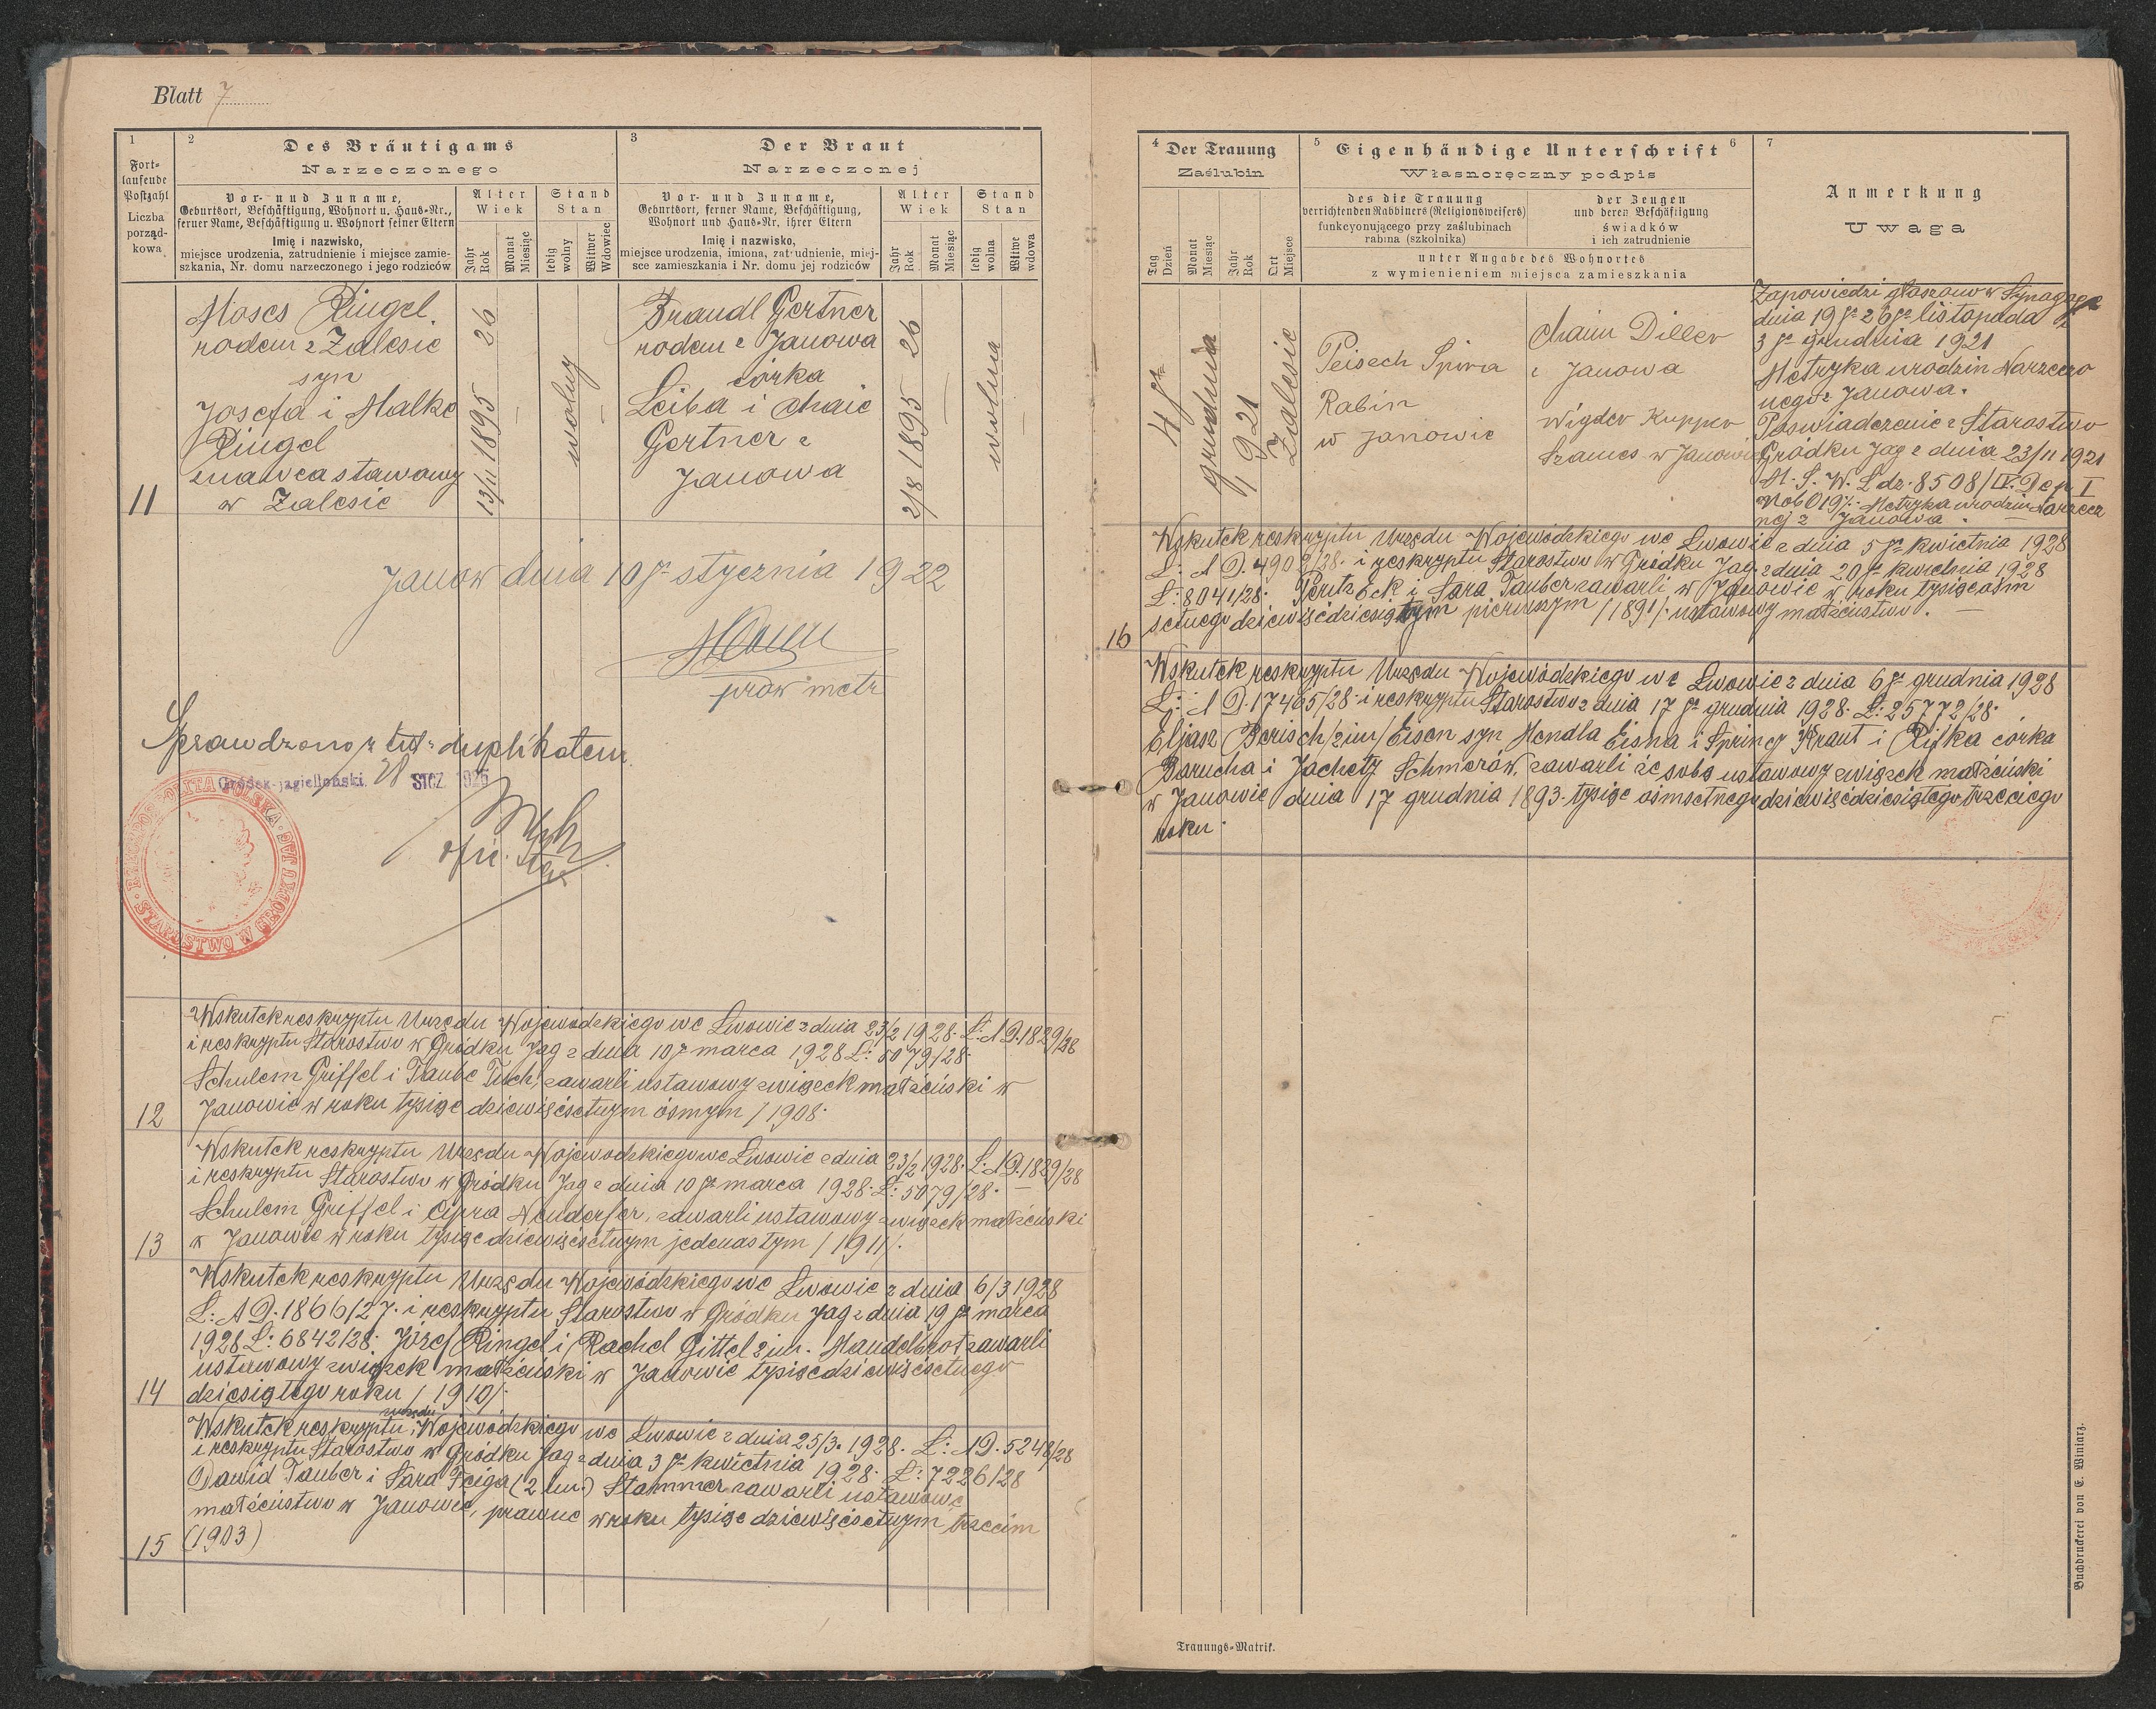 Blatt 7
1
Fort-
laufende
Postzahl
Liczba
porząd-
kowa
2
Des Bräutigams
Narzeczonego
Vor- und Zuname,
Geburtsort, Beschäftigung, Wohnort u. Haus-Nr.,
ferner Name, Beschäftigung u. Wohnort seiner Eltern
Imię i nazwisko,
miejsce urodzenia, zatrudnienie i miejsce zamie-
szkania, Nr. domu narzeczonego i jego rodziców
Alter
Wiek
Jahr
Rok
Monat
Miesiąc
Stand
Stan
ledig
wolny
Witwer
Wdowiec
3
Der Braut
Narzeczonej
Vor- und Zuname,
Geburtsort, ferner Name, Beschäftigung,
Wohnort und Haus-Nr. ihrer Eltern
Imię i nazwisko,
miejsce urodzenia, imiona, zatrudnienie, miej-
sce zamieszkania i Nr. domu jej rodziców
Alter
Wiek
Jahr
Rok
Monat
Miesiąc
Stand
Stan
ledig
wolna
Witwe
wdowa
4
Der Trauung
Zaślubin
Tag
Dzień
Monat
Miesiąc
Jahr
Rok
Ort
Miejsce
5
Eigenhändige Unterschrift
6
Własnoręczny podpis
des die Trauung
verrichtenden Rabbiners (Religionsweisers)
funkcyonującego przy zaślubinach
rabina (szkolnika)
der Zeugen
und deren Beschäftigung
świadków
i ich zatrudnienie
unter Angabe des Wohnortes
z wymienieniem miejsca zamieszkania
7
Anmerkung
Uwaga
11
Moses Ringel
rodem z Zalesie
syn
Josefa i Malke
Ringel
znawca stawowy
w Zalesie
26
13/11 1895
wolny
Brandl Gertner
rodem z Janowa
córka
Leiba i Chaie
Gertner z
Janowa
26
2/8 1895
wolna
4go
grudnia
1921
Zalesie
Peisech Spira
Rabin
w Janowie
Chaim Diller
z Janowa
Wigder Kupper
Szames w Janowie
Zapowiedzi głoszono w Synagogze
dnia 19go 26go listopada i
3go grudnia 1921
Metryka urodzin Narzeczo
nego z Janowa.
Poswiadczenie z Starostwo
Gródku Jag z dnia 23/11 1921
M. S. W. L dz. 8508/IV. Dep I
Mob 019/. Metryka urodzin Narzecz
nej z Janowa.
Janow dnia 10go stycznia 1922
prow metr
Sprawdzono z tut. duplikatem.
Gródek-jagielloński, 28 STCZ. 1925
RZECZPOSPOLITA POLSKA
STAROSTWO W GRÓDKU JAG.
Wskutek reskryptu Urzędu Wojewódzkiego we Lwowie z dnia 23/2 1928. L: AD. 1829/28
i reskryptu Starostwo w Gródku Jag z dnia 10go marca 1928 L: 5079/28.
Schulem Griffel i Taube Tuch, zawarli ustawowy związek małżeński w
12 Janowie w roku tysiąc dziewięćsetnym ósmym /1908.
Wskutek reskryptu Urzędu Wojewodzkiego we Lwowie z dnia 23/2 1928. L: AD. 1829/28
i reskryptu Starostwo w Gródku Jag z dnia 10go marca 1928. L: 5079/28.
Schulem Griffel i Cipra Neuderfer, zawarli ustawowy związek małżeński
13 w Janowie w roku tysiąc dziewięćsetnym jedenastym /1911/.
Wskutek reskryptu Urzędu Wojewódzkiego we Lwowie z dnia 6/3 1928
L: AD. 1866/27. i reskryptu Starostwo w Gródku Jag z dnia 19go marca
1928 L: 6842/28. Józef Ringel i Rachel Gittel 2 im. Mandelbrot zawarli
ustawowy związek małżeński w Janowie tysiąc dziewięćsetnego
14 dziesiątego roku /1910/.
Wskutek reskryptu urzędu Wojewódzkiego we Lwowie z dnia 25/3. 1928. L: AD. 5248/28
i reskryptu Starostwo w Gródku Jag z dnia 3go kwietnia 1928. L: 7226/28
Dawid Tauber i Sara Feiga (2 im.) Stammer zawarli ustawowe
małżeństwo w Janowie, prawne w roku tysiąc dziewięćsetnym trzecim
15 (1903)
Wskutek reskryptu Urzędu Wojewódzkiego we Lwowie z dnia 5go kwietnia 1928
L: AD. 4902/28. i reskryptu Starostwo w Gródku Jag. z dnia 20go kwietnia 1928
L: 8041/28. Peritz Eck i Sara Tauber zawarli w Janowie w roku tysiąc ośm
setnego dziewięćdziesiątym pierwszym /1891/. ustawowy małżeństwo.
16
Wskutek reskryptu Urzędu Wojewódzkiego we Lwowie z dnia 6go grudnia 1928
L: AD. 17465/28 i reskryptu Starostwo z dnia 17go grudnia 1928. L: 25772/28.
Eljasz Berisch /2 im/ Eisen syn Mendla Eisna i Sprincy Kraut i Rifka córka
Barucha i Jachety Schmorów, zawarli że sobą ustawowy związek małżeński
w Janowie dnia 17 grudnia 1893. tysiąc ośmsetnego dziewięćdziesiątego trzeciego
roku.
Trauungs-Matrik.
Buchdruckerei von E. Winiarz.